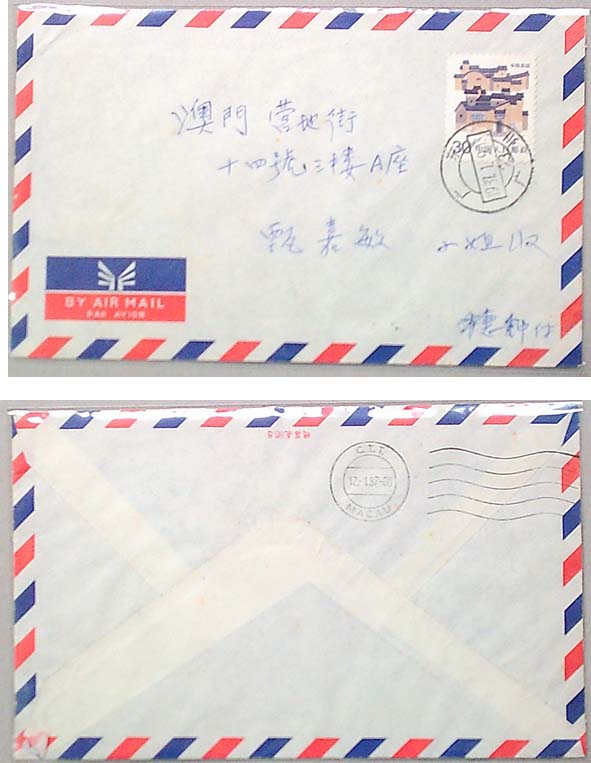 澳門 營地街
十四號三樓A座
甄嘉敏 小姐收
穗鄭付
30
BY AIR MAIL
PAR AVION
C.T.T.
12.-1.87-08
MACAU